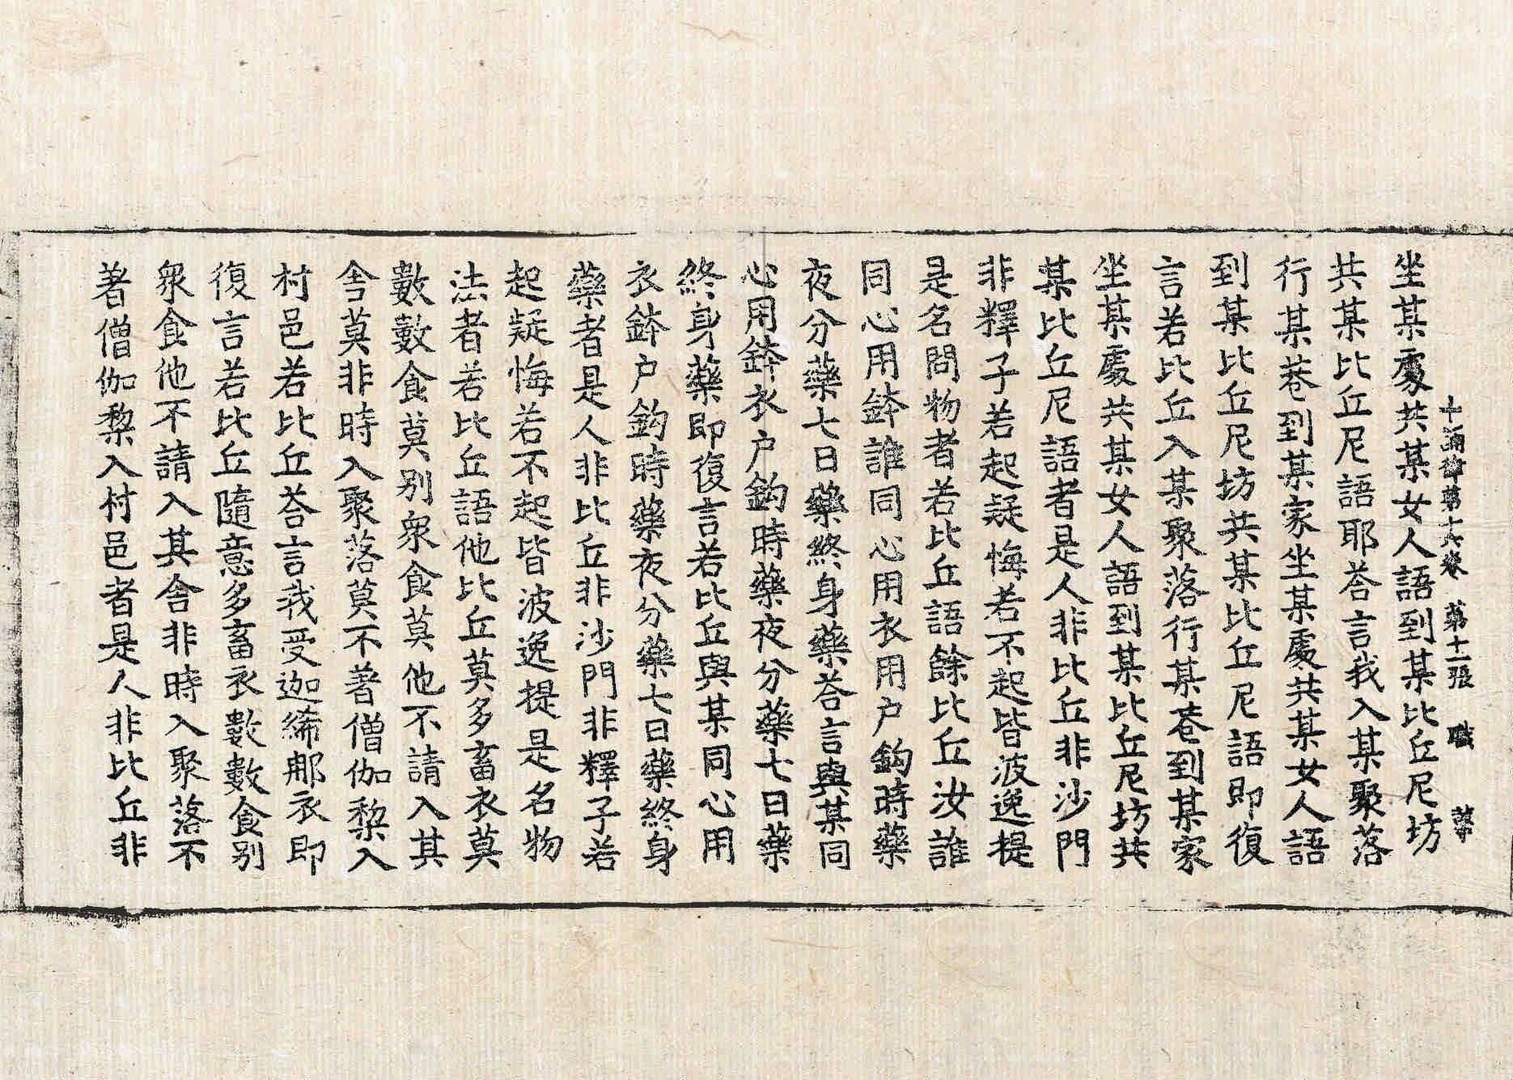 十誦律第十六卷 第十一張 職
坐某處共某女人語到某比丘尼坊
共某比丘尼語耶荅言我入某聚落
行某巷到某家坐某處共某女人語
到某比丘尼坊共某比丘尼語即復
言若比丘入某聚落行某巷到某家
坐某處共某女人語到某比丘尼坊共
某比丘尼語者是人非比丘非沙門
非釋子若起疑悔若不起皆波逸提
是名問物者若比丘語餘比丘汝誰
同心用鉢誰同心用衣用户鈎時藥
夜分藥七日藥終身藥荅言與某同
心用鉢衣户鈎時藥夜分藥七日藥
終身藥即復言若比丘與某同心用
衣鉢户鈎時藥夜分藥七日藥終身
藥者是人非比丘非沙門非釋子若
起疑悔若不起皆波逸提是名物
法者若比丘語他比丘莫多畜衣莫
數數食莫别衆食莫他不請入其
舍莫非時入聚落莫不著僧伽梨入
村邑若比丘荅言我受迦絺那衣即
復言若比丘隨意多畜衣數數食别
衆食他不請入其舍非時入聚落不
著僧伽梨入村邑者是人非比丘非